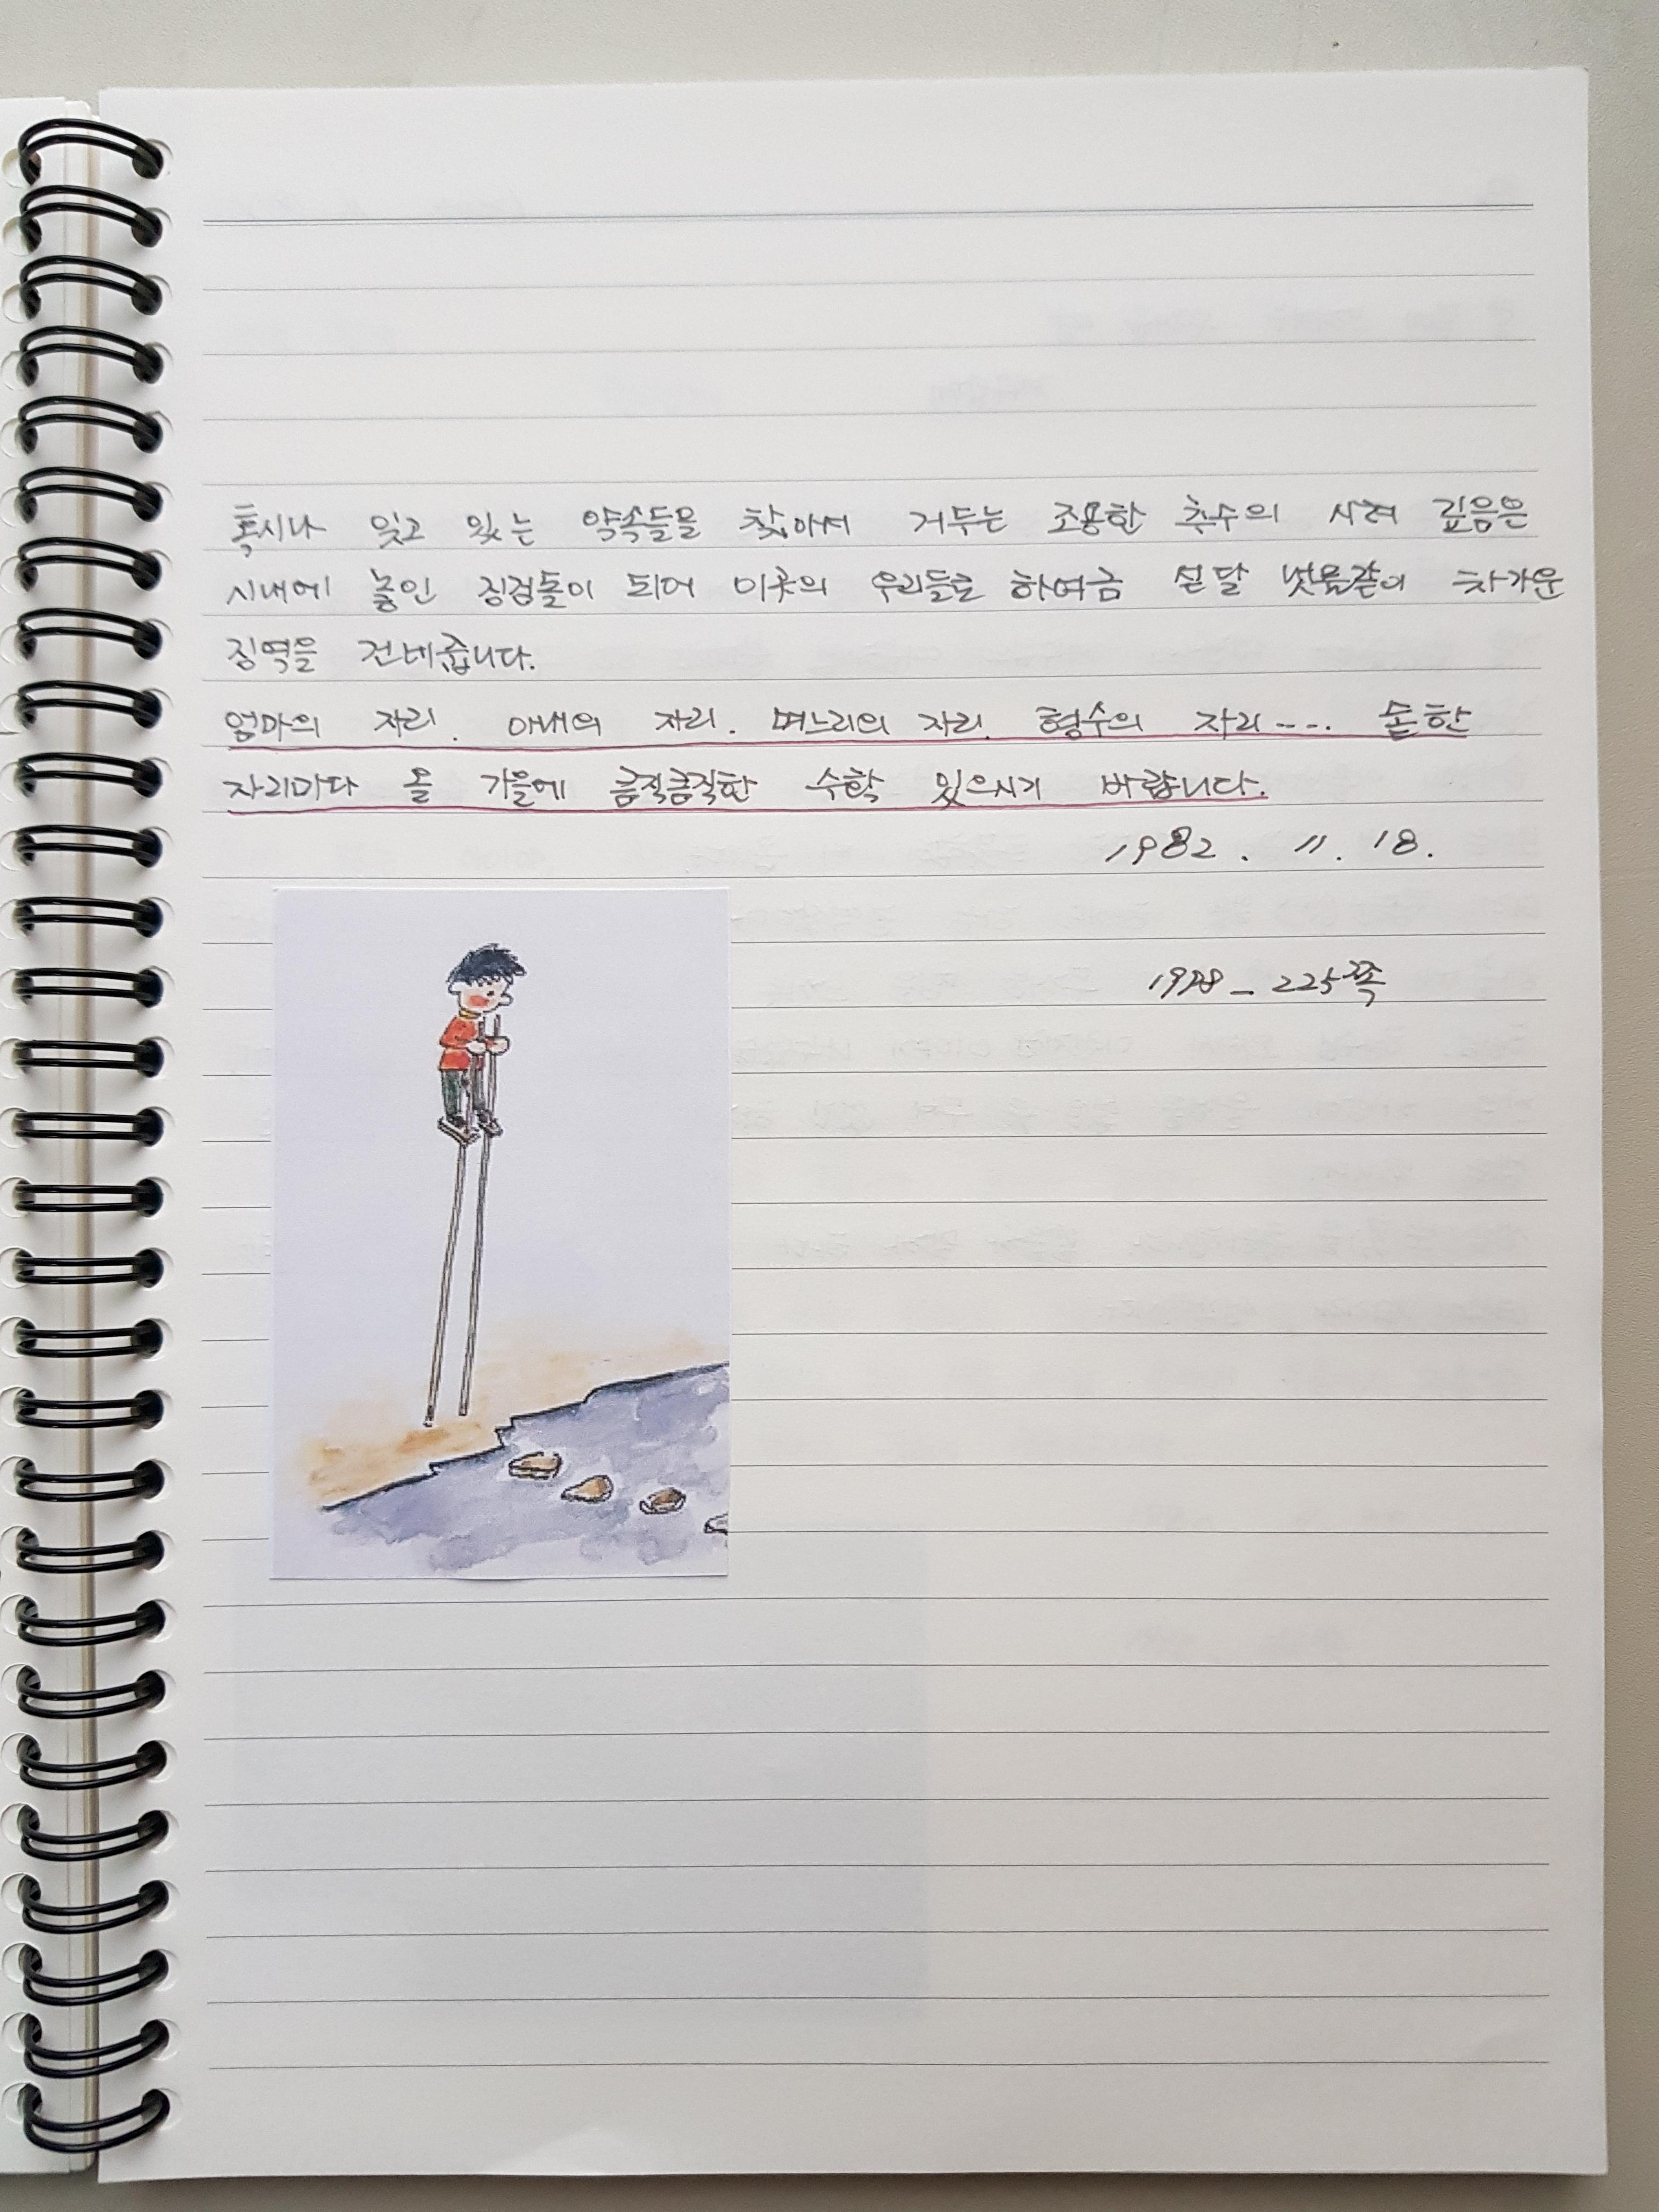 혹시나 잊고 있는 약속들을 찾아서 거두는 조용한 추수의 사려 깊음은
시내에 놓인 징검돌이 되어 이곳의 우리들로 하여금 섣달 냇물같이 차가운
징역을 건네줍니다.
엄마의 자리. 아내의 자리. 며느리의 자리. 형수의 자리---. 숱한
자리마다 올 가을에 큼직큼직한 수확 있으시기 바랍니다.
1982. 11. 18.
1998 - 225쪽